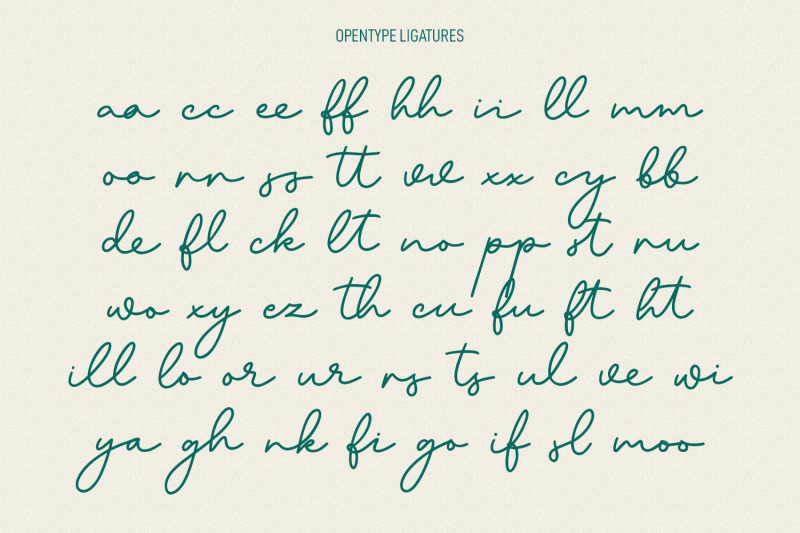 OPENTYPE LIGATURES
aa cc ee ff hh ii ll mm
oo nn ss tt vv xx cy bb
de fl ck lt no pp st nu
wo xy ez th cu fu ft ht
ill lo or ur rs ts ul ve wi
ya gh nk fi go if sl moo